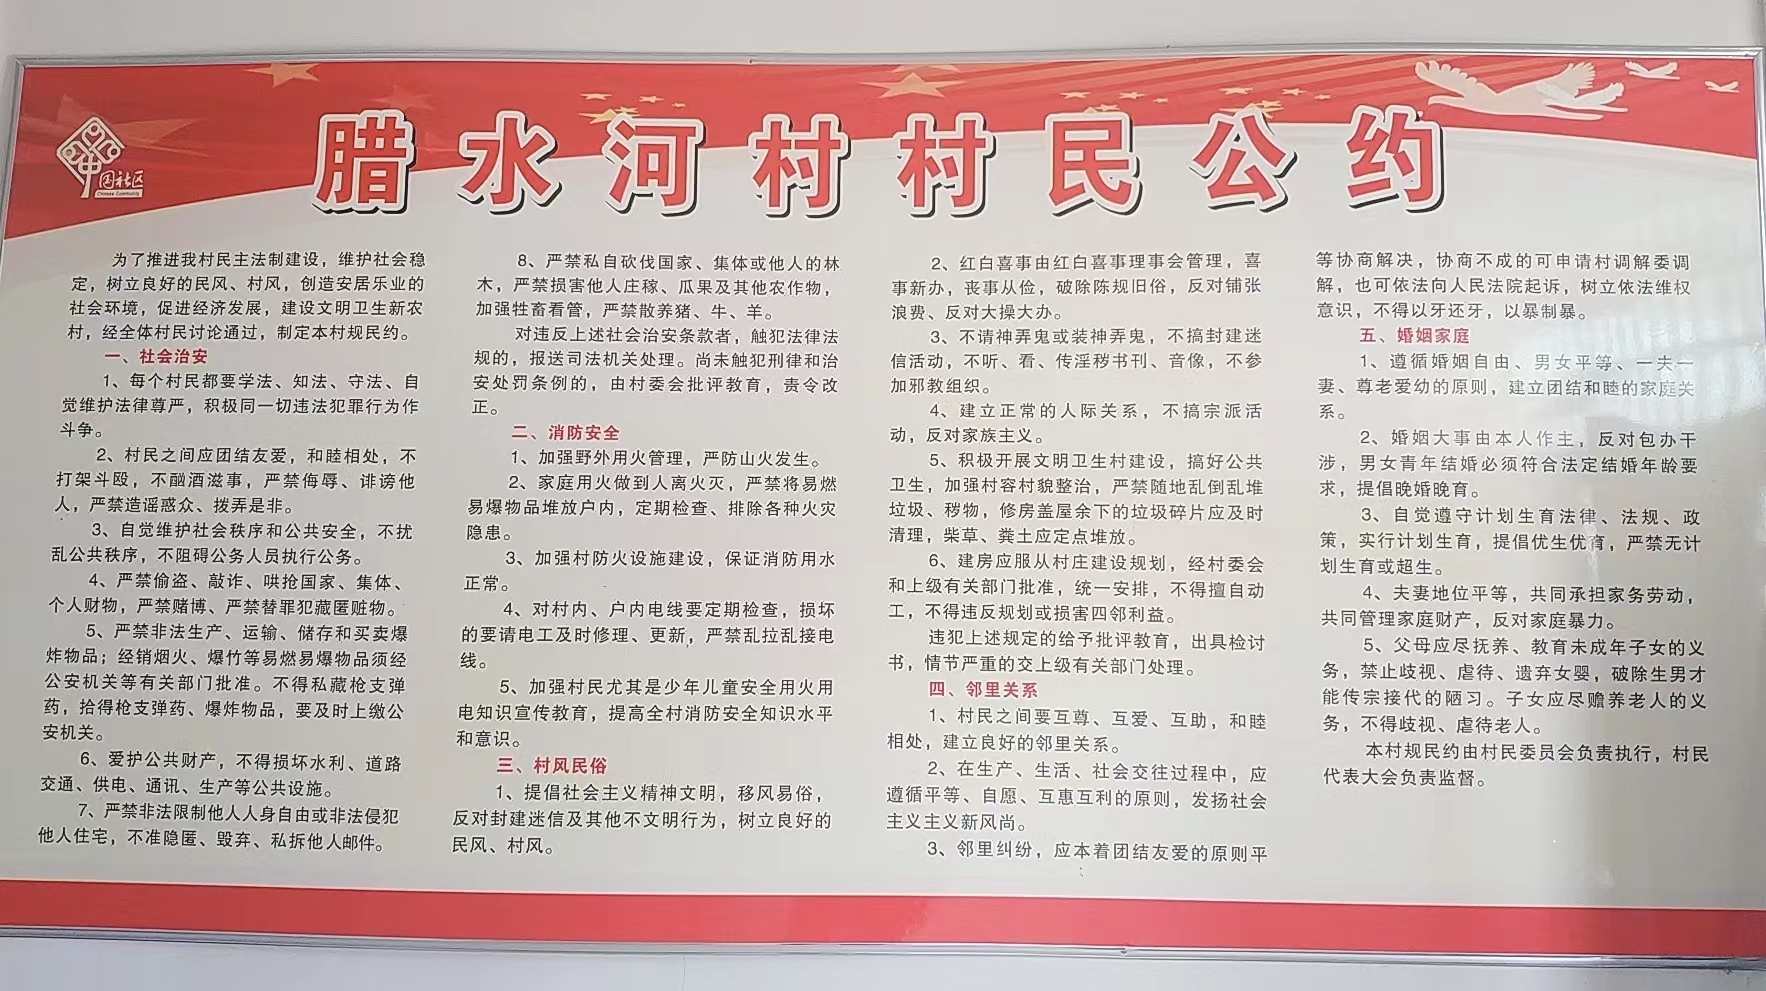 中国社区
Chinese Community
腊水河村村民公约
为了推进我村民主法制建设，维护社会稳
定，树立良好的民风、村风，创造安居乐业的
社会环境，促进经济发展，建设文明卫生新农
村，经全体村民讨论通过，制定本村规民约。
一、社会治安
1、每个村民都要学法、知法、守法、自
觉维护法律尊严，积极同一切违法犯罪行为作
斗争。
2、村民之间应团结友爱，和睦相处，不
打架斗殴，不酗酒滋事，严禁侮辱、诽谤他
人，严禁造谣惑众、拨弄是非。
3、自觉维护社会秩序和公共安全，不扰
乱公共秩序，不阻碍公务人员执行公务。
4、严禁偷盗、敲诈、哄抢国家、集体、
个人财物，严禁赌博、严禁替罪犯藏匿赃物。
5、严禁非法生产、运输、储存和买卖爆
炸物品；经销烟火、爆竹等易燃易爆物品须经
公安机关等有关部门批准。不得私藏枪支弹
药，拾得枪支弹药、爆炸物品，要及时上缴公
安机关。
6、爱护公共财产，不得损坏水利、道路
交通、供电、通讯、生产等公共设施。
7、严禁非法限制他人人身自由或非法侵犯
他人住宅，不准隐匿、毁弃、私拆他人邮件。
8、严禁私自砍伐国家、集体或他人的林
木，严禁损害他人庄稼、瓜果及其他农作物，
加强牲畜看管，严禁散养猪、牛、羊。
对违反上述社会治安条款者，触犯法律法
规的，报送司法机关处理。尚未触犯刑律和治
安处罚条例的，由村委会批评教育，责令改
正。
二、消防安全
1、加强野外用火管理，严防山火发生。
2、家庭用火做到人离火灭，严禁将易燃
易爆物品堆放户内，定期检查、排除各种火灾
隐患。
3、加强村防火设施建设，保证消防用水
正常。
4、对村内、户内电线要定期检查，损坏
的要请电工及时修理、更新，严禁乱拉乱接电
线。
5、加强村民尤其是少年儿童安全用火用
电知识宣传教育，提高全村消防安全知识水平
和意识。
三、村风民俗
1、提倡社会主义精神文明，移风易俗，
反对封建迷信及其他不文明行为，树立良好的
民风、村风。
2、红白喜事由红白喜事理事会管理，喜
事新办，丧事从俭，破除陈规旧俗，反对铺张
浪费、反对大操大办。
3、不请神弄鬼或装神弄鬼，不搞封建迷
信活动，不听、看、传淫秽书刊、音像，不参
加邪教组织。
4、建立正常的人际关系，不搞宗派活
动，反对家族主义。
5、积极开展文明卫生村建设，搞好公共
卫生，加强村容村貌整治，严禁随地乱倒乱堆
垃圾、秽物，修房盖屋余下的垃圾碎片应及时
清理，柴草、粪土应定点堆放。
6、建房应服从村庄建设规划，经村委会
和上级有关部门批准，统一安排，不得擅自动
工，不得违反规划或损害四邻利益。
违犯上述规定的给予批评教育，出具检讨
书，情节严重的交上级有关部门处理。
四、邻里关系
1、村民之间要互尊、互爱、互助，和睦
相处，建立良好的邻里关系。
2、在生产、生活、社会交往过程中，应
遵循平等、自愿、互惠互利的原则，发扬社会
主义主义新风尚。
3、邻里纠纷，应本着团结友爱的原则平
等协商解决，协商不成的可申请村调解委调
解，也可依法向人民法院起诉，树立依法维权
意识，不得以牙还牙，以暴制暴。
五、婚姻家庭
1、遵循婚姻自由、男女平等、一夫一
妻、尊老爱幼的原则，建立团结和睦的家庭关
系。
2、婚姻大事由本人作主，反对包办干
涉，男女青年结婚必须符合法定结婚年龄要
求，提倡晚婚晚育。
3、自觉遵守计划生育法律、法规、政
策，实行计划生育，提倡优生优育，严禁无计
划生育或超生。
4、夫妻地位平等，共同承担家务劳动，
共同管理家庭财产，反对家庭暴力。
5、父母应尽抚养、教育未成年子女的义
务，禁止歧视、虐待、遗弃女婴，破除生男才
能传宗接代的陋习。子女应尽赡养老人的义
务，不得歧视、虐待老人。
本村规民约由村民委员会负责执行，村民
代表大会负责监督。